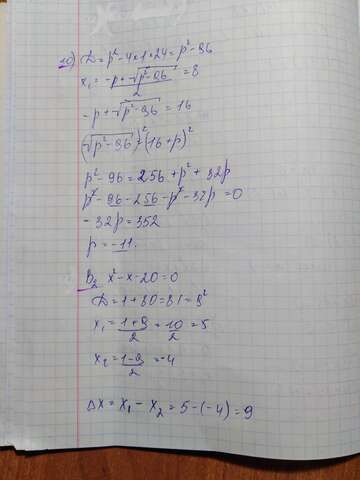 20) D = p² - 4 × 1 × 24 = p² - 96
x₁ = (-p + √(p² - 96))/2 = 8
-p + √(p² - 96) = 16
(√(p² - 96))² = (16 + p)²
p² - 96 = 256 + p² + 32p
p² - 96 - 256 - p² - 32p = 0
-32p = 352
p = -11.
B₂ x² - x - 20 = 0
D = 1 + 80 = 81 = 9²
x₁ = (1 + 9)/2 = 10/2 = 5
x₂ = (1 - 9)/2 = -4
Δx = x₁ - x₂ = 5 - (-4) = 9